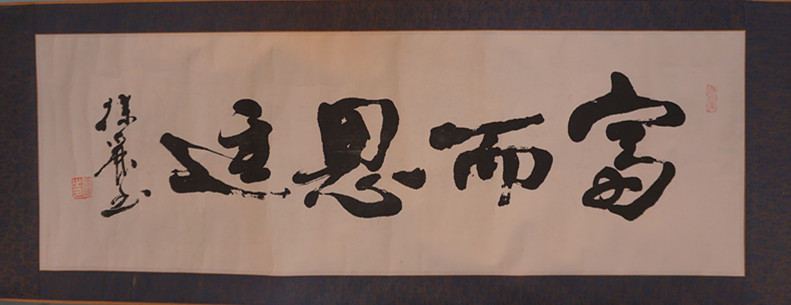 富而思進